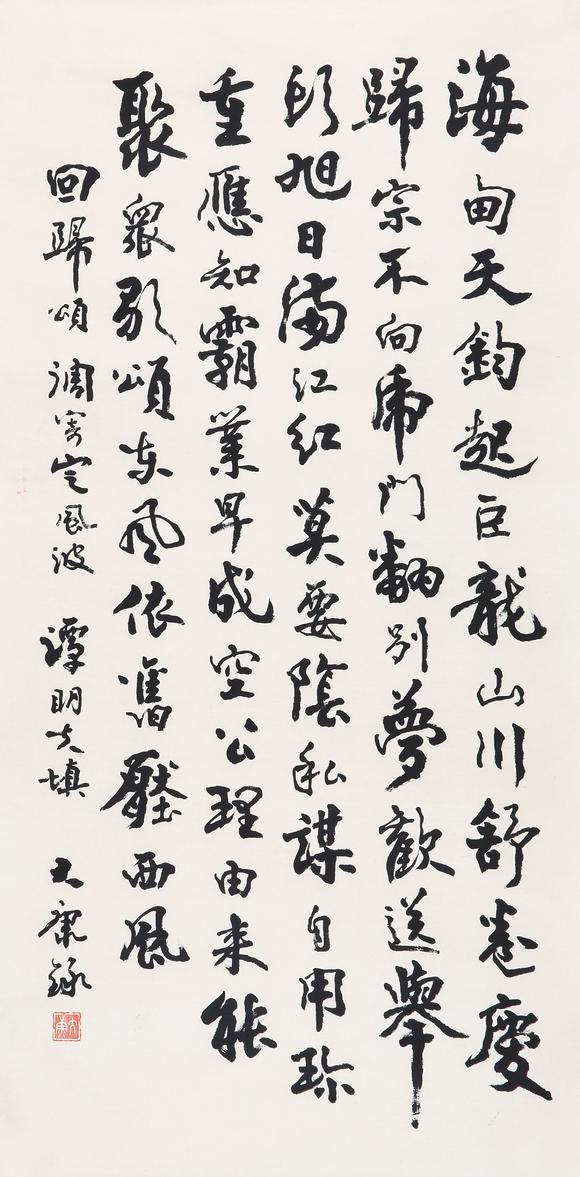 海甸天鈞起巨龍山川舒卷慶
歸宗不向虎門翻別夢歡送舉
頭旭日滿江紅莫要陰私謀自用珍
重應知霸業早成空公理由来能
聚眾歌頌东風依舊壓西風
回歸頌 調寄定風波 譚明填 大康錄